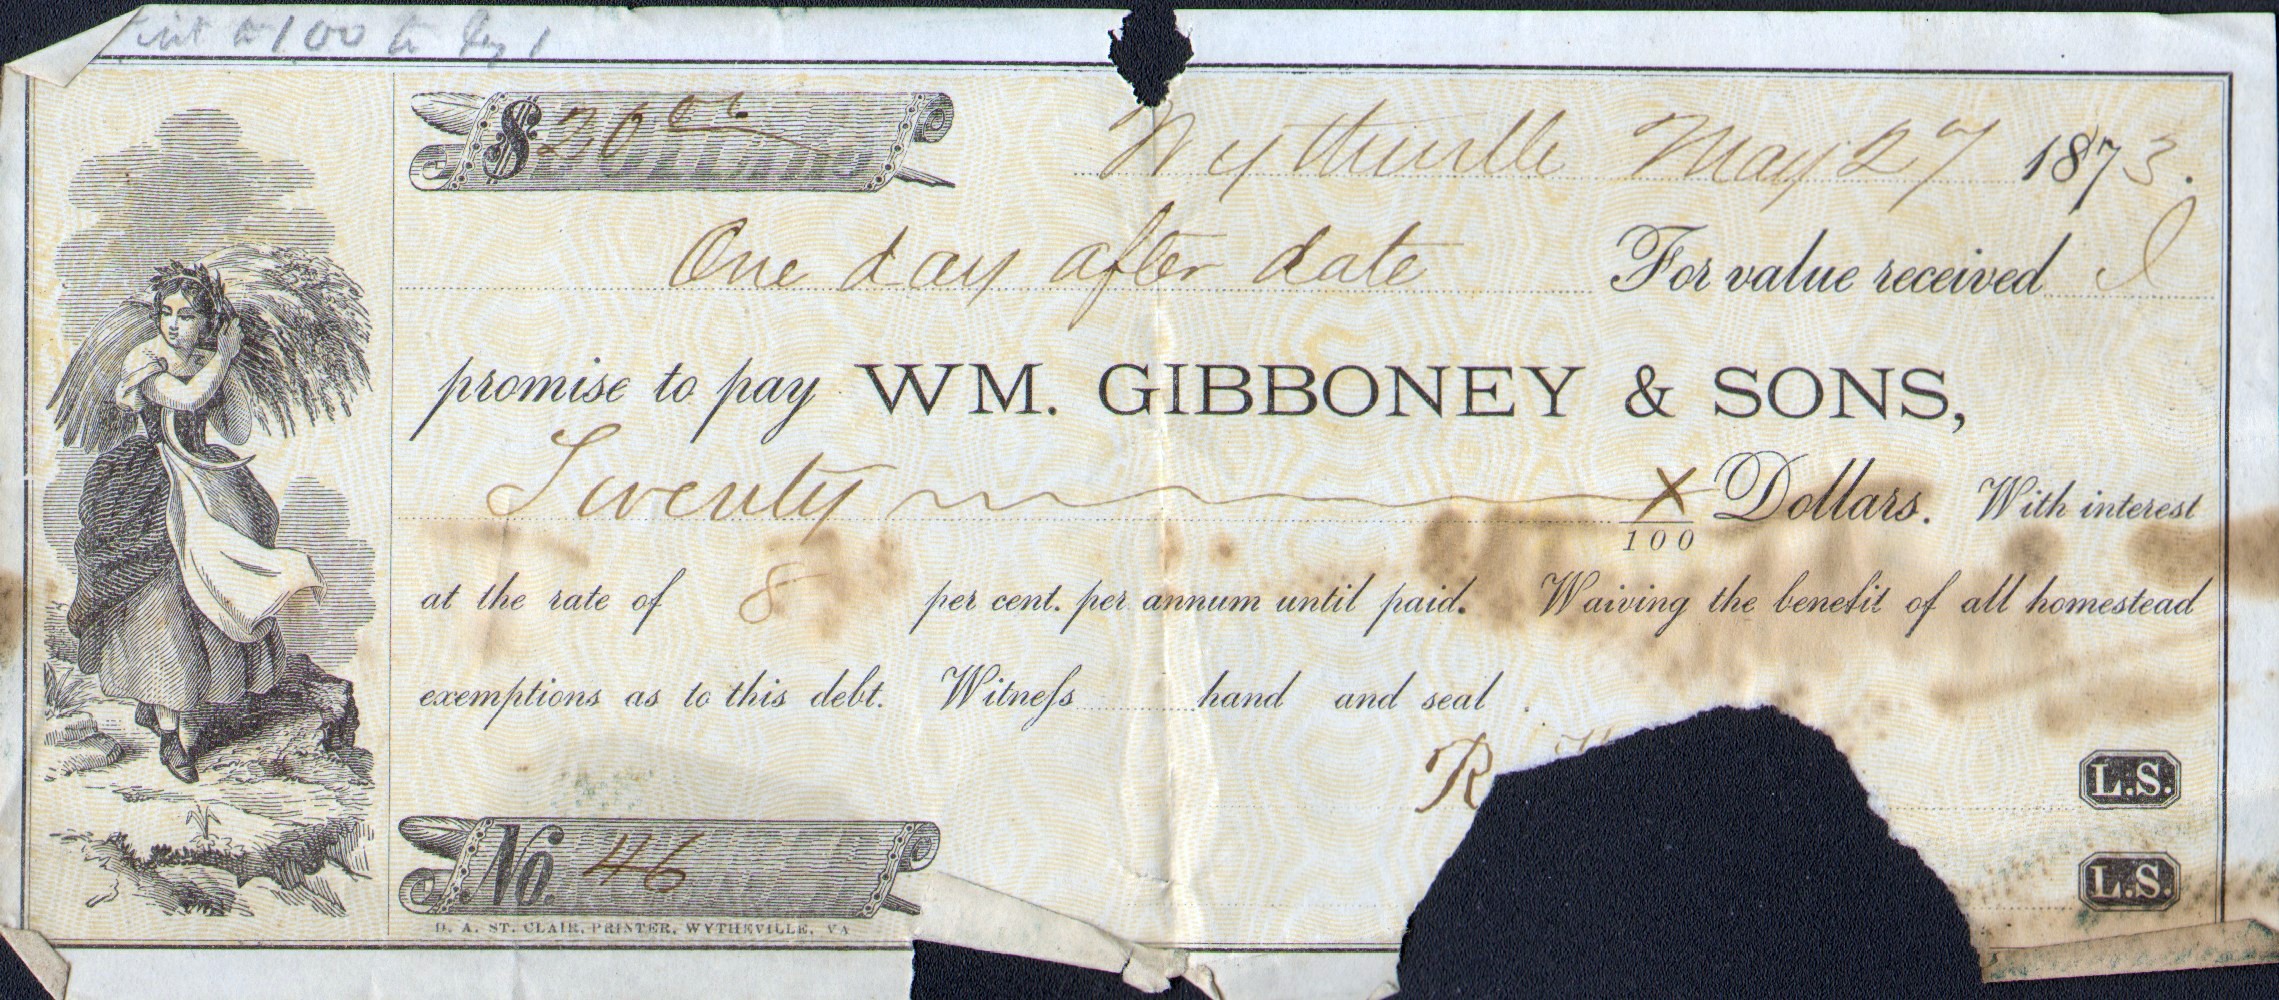 $ 20 00 DOLLARS
Wytheville May 27 1873.
One day after date For value received I
promise to pay WM. GIBBONEY & SONS,
Twenty X/100 Dollars. With interest
at the rate of 8 per cent. per annum until paid. Waiving the benefit of all homestead
exemptions as to this debt. Witness hand and seal .
R
L.S.
No. 46
L.S.
D. A. ST. CLAIR, PRINTER, WYTHEVILLE, VA